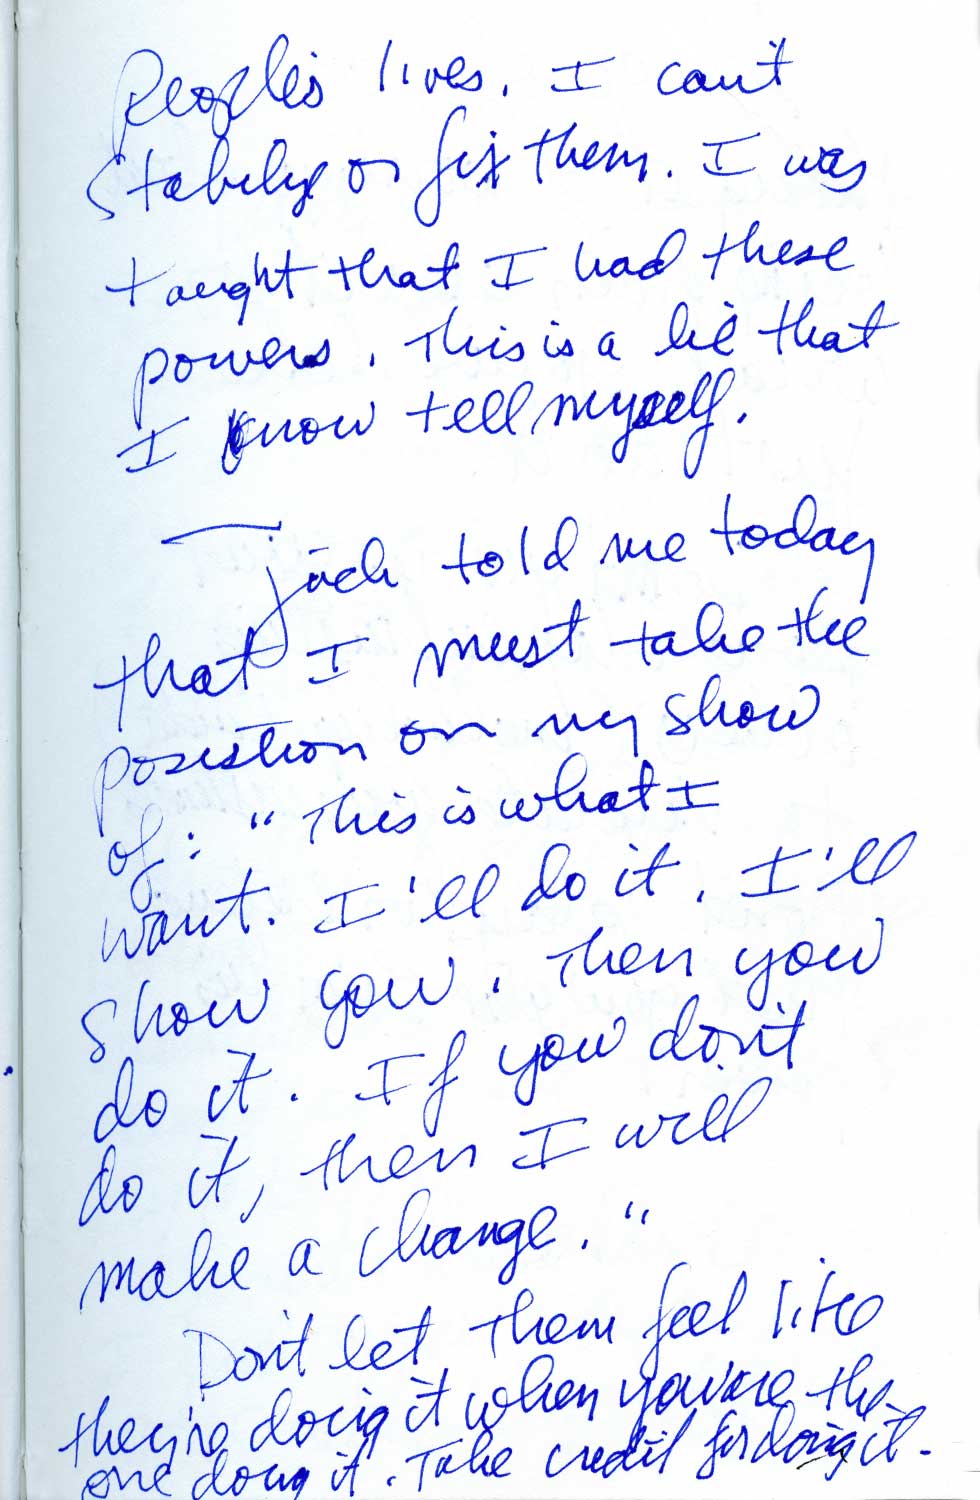 People's lives. I can't
stabilize or fix them. I was
taught that I had these
powers. This is a lie that
I know tell myself.
Jack told me today
that I must take the
position on my show
of: "This is what I
want. I'll do it. I'll
show you. Then you
do it. If you don't
do it, then I will
make a change."
Don't let them feel like
they're doing it when you're the
one doing it. Take credit for doing it.